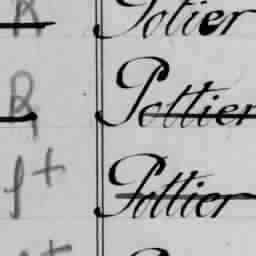 R Potier
R Pottier
1+ Pottier